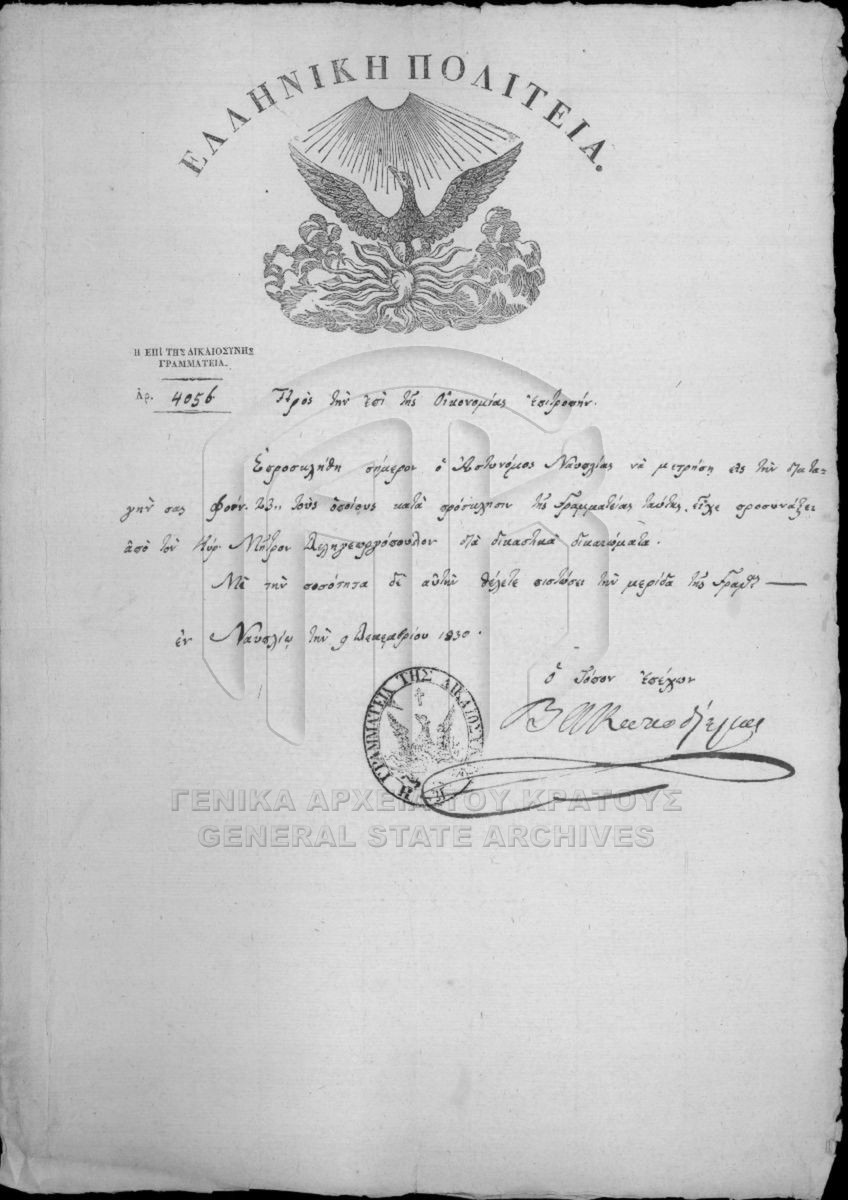 ΕΛΛΗΝΙΚΗ ΠΟΛΙΤΕΙΑ.
Η ΕΠΙ ΤΗΣ ΔΙΚΑΙΟΣΥΝΗΣ
ΓΡΑΜΜΑΤΕΙΑ.
Ἀρ. 4056
Πρὸς τὴν ἐπὶ τῆς Οἰκονομίας Ἐπιτροπήν.
Ἐπροσκλήθη σήμερον ὁ Ἀστυνόμος Ναυπλίας νὰ μετρήσῃ εἰς τὴν διατα-
γήν σας Φοίν. 23,, τοὺς ὁποίους κατὰ πρόσκλησιν τῆς Γραμματείας ταύτης, εἶχε προσυνάξει
ἀπὸ τὸν Κύρ. Μῆτρον δικαστικὰ δικαιώματα.
Μὲ τὴν ποσότητα δὲ αὐτὴν θέλετε πιστώσει τὴν μερίδα τῆς
ἐν Ναυπλίῳ τὴν 9 Δεκεμβρίου 1830.
ὁ Τόπον Ἐπέχων
Η ΓΡΑΜΜΑΤΕΙΑ ΤΗΣ ΔΙΚΑΙΟΣΥΝΗΣ
ΓΕΝΙΚΑ ΑΡΧΕΙΑ ΤΟΥ ΚΡΑΤΟΥΣ
GENERAL STATE ARCHIVES